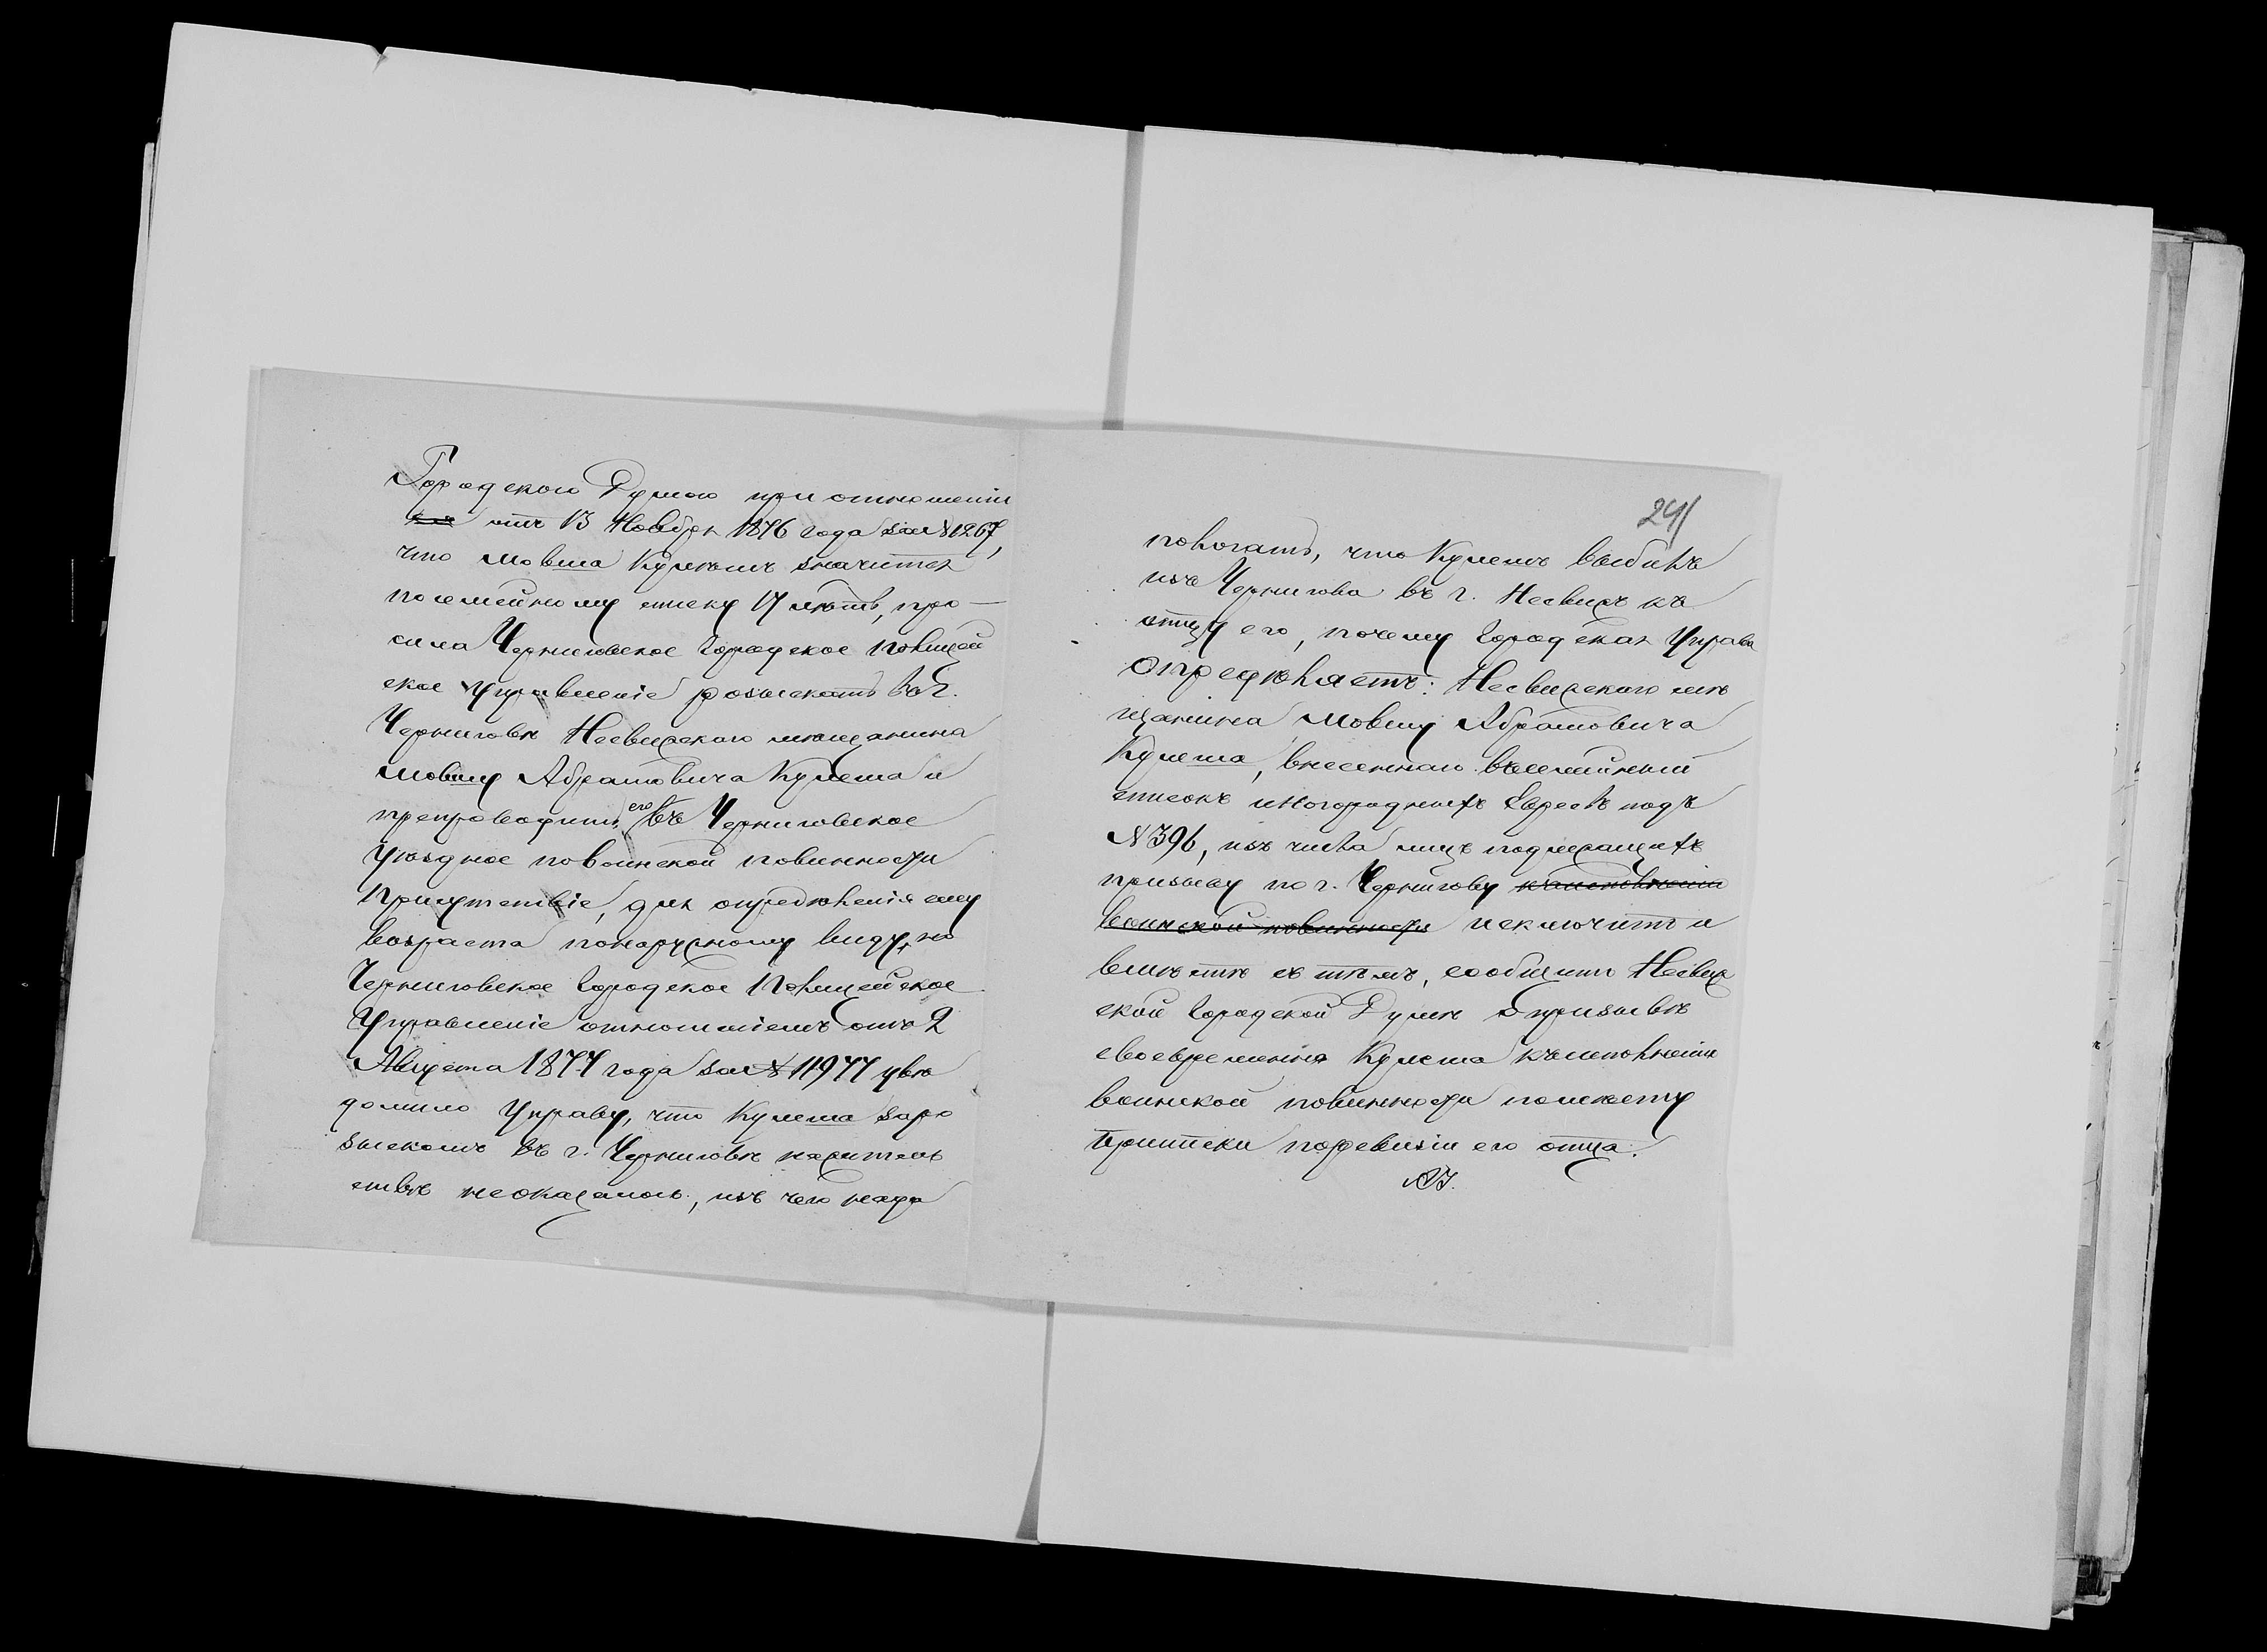 Городскою Думою при отношеніи
отъ 13 Ноября 1876 года за № 1267,
что Мовша Кулешъ значится
посемейному списку 17 лѣтъ, про-
сила Черниговское Городское Полицей
ское Управленіе розыскать въ г.
Черниговѣ Несвижскаго мѣщанина
Мовшу Абрамовича Кулеша и
препроводить его въ Черниговское
Уѣздное повоинской повинности
Присутствіе, для опредѣленія ему
возраста понаружному виду, но
Черниговское Городское Полицейское
Управленіе отношеніемъ отъ 2
Августа 1877 года за № 11977 увѣ
домило Управу, что Кулеша заро
зыскомъ въ г. Черниговѣ нажитель
ствѣ неоказалось, изъ чего надо
241
пологать, что Кулешъ выбылъ
изъ Чернигова въ г. Несвижъ къ
отцу его, почему Городская Управа
Опредѣляетъ: Несвижскаго мѣ
щанина Мовшу Абрамовича
Кулеша, внесеннаго въсемейный
списокъ иногороднихъ Евреевъ подъ
№ 396, изъ числа лицъ подлежащихъ
призыву по г. Чернигову къисполненію
воинской повинности исключить и
вмѣстѣ съ тѣмъ, сообщить Несвиж
ской Городской Думѣ о призывѣ
своевременно Кулеша къисполненію
воинской повинности помѣсту
приписки поревизіи его отца.